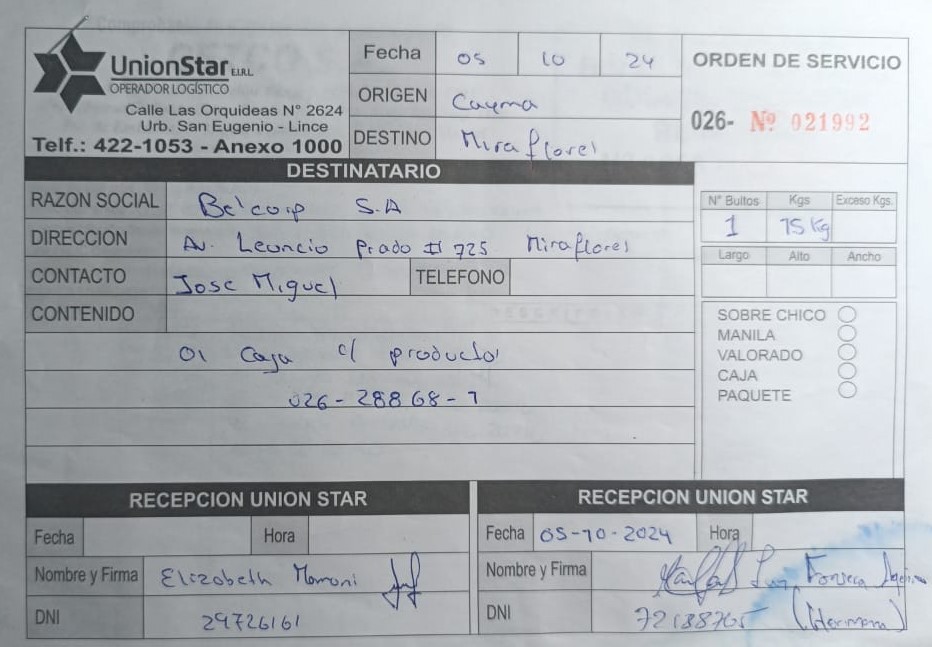 UnionStar E.I.R.L
OPERADOR LOGÍSTICO
Calle Las Orquideas N° 2624
Urb. San Eugenio - Lince
Telf.: 422-1053 - Anexo 1000
Fecha 05 10 24
ORIGEN Cayma
DESTINO Miraflores
ORDEN DE SERVICIO
026- Nº 021992
DESTINATARIO
RAZON SOCIAL Belcorp S.A
DIRECCION Av. Leoncio Prado # 725 Miraflores
CONTACTO Jose Miguel TELEFONO
CONTENIDO
01 Caja c/ productos
026-28868-7
N° Bultos Kgs Exceso Kgs.
1 15 kg
Largo Alto Ancho
SOBRE CHICO
MANILA
VALORADO
CAJA
PAQUETE
RECEPCION UNION STAR
Fecha Hora
Nombre y Firma Elizabeth Mamani
DNI 29726161
RECEPCION UNION STAR
Fecha 05-10-2024 Hora
Nombre y Firma Luz Fonseca
DNI 72188765 (Hermana)